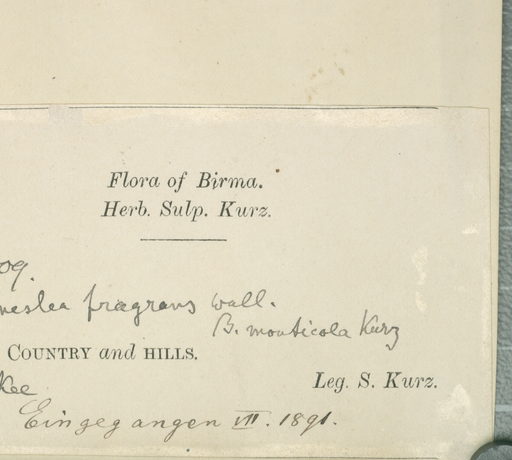 Flora of Birma.
Herb. Sulp. Kurz.
09.
neslea fragrans wall.
B. monticola Kurz
COUNTRY and HILLS.
Kee
Leg. S. Kurz.
Eingegangen VIII. 1891.